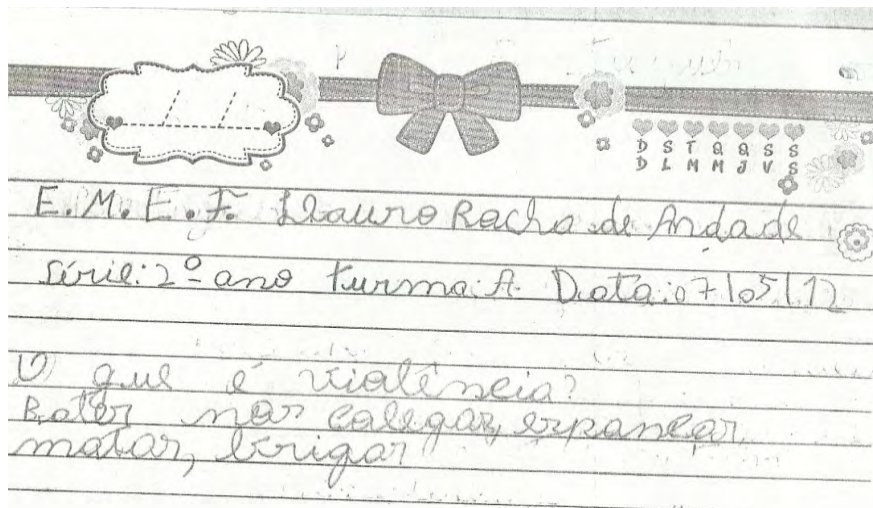 D S T Q Q S S
D L M M J V S
E. M. E. F. Lauro Rocha de Andade
Série: 2º ano turma: A Data: 07/05/12
O que é violência?
Bater nos colegas, espancar,
matar, brigar